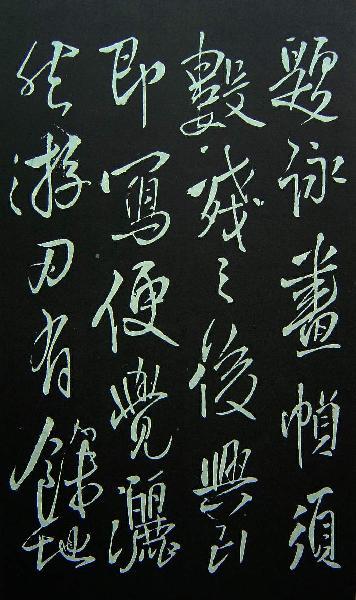 題詠畫幀須
數之後興到
即寫便覺灑
然游刃有餘地